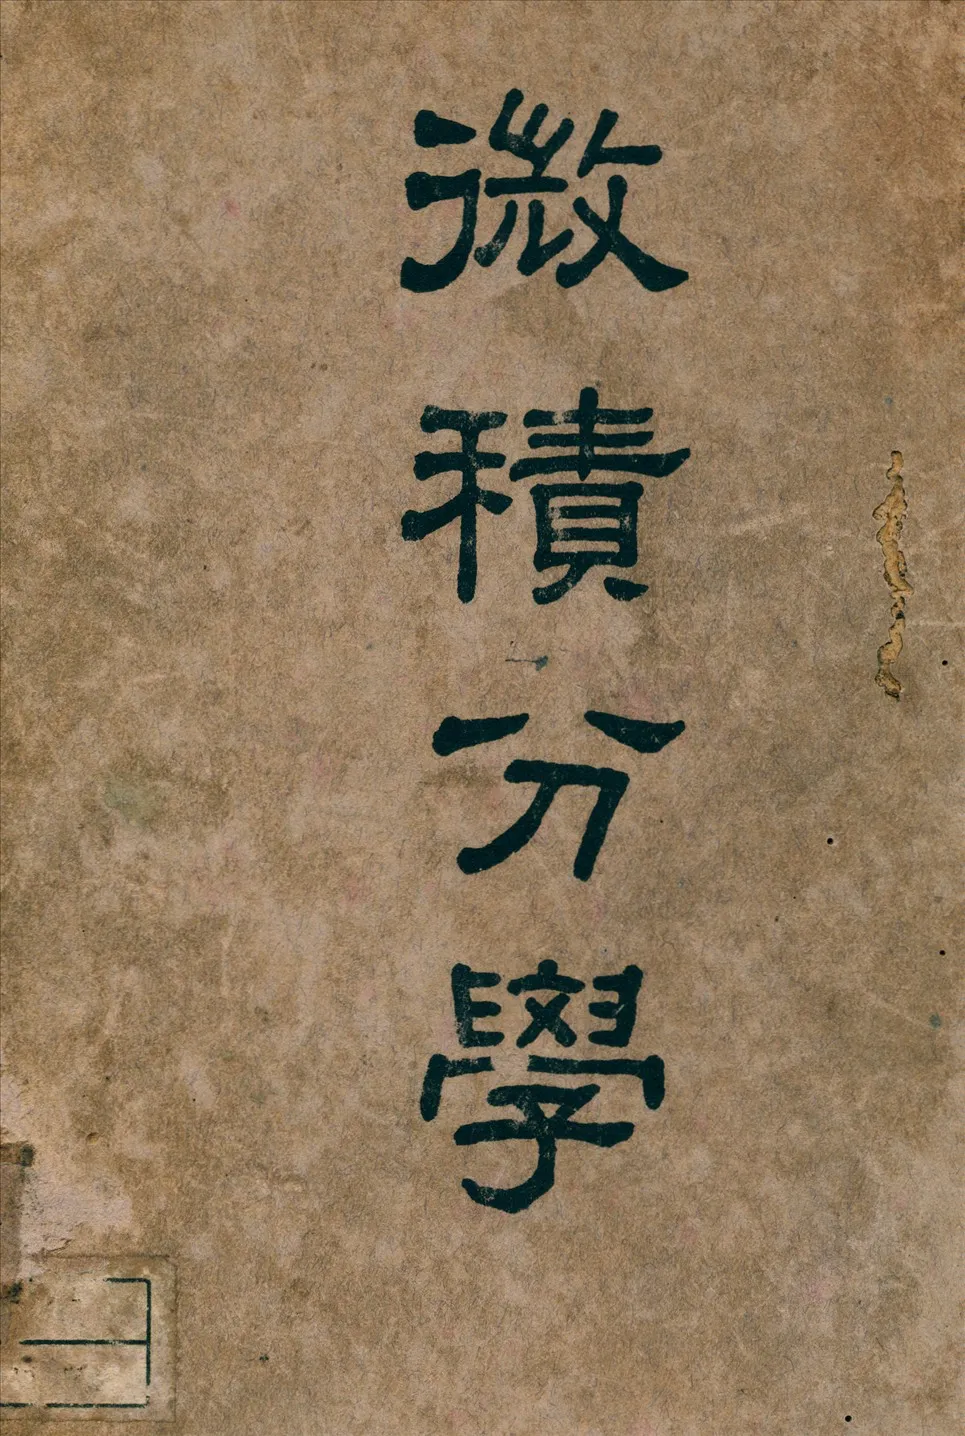 微積分學